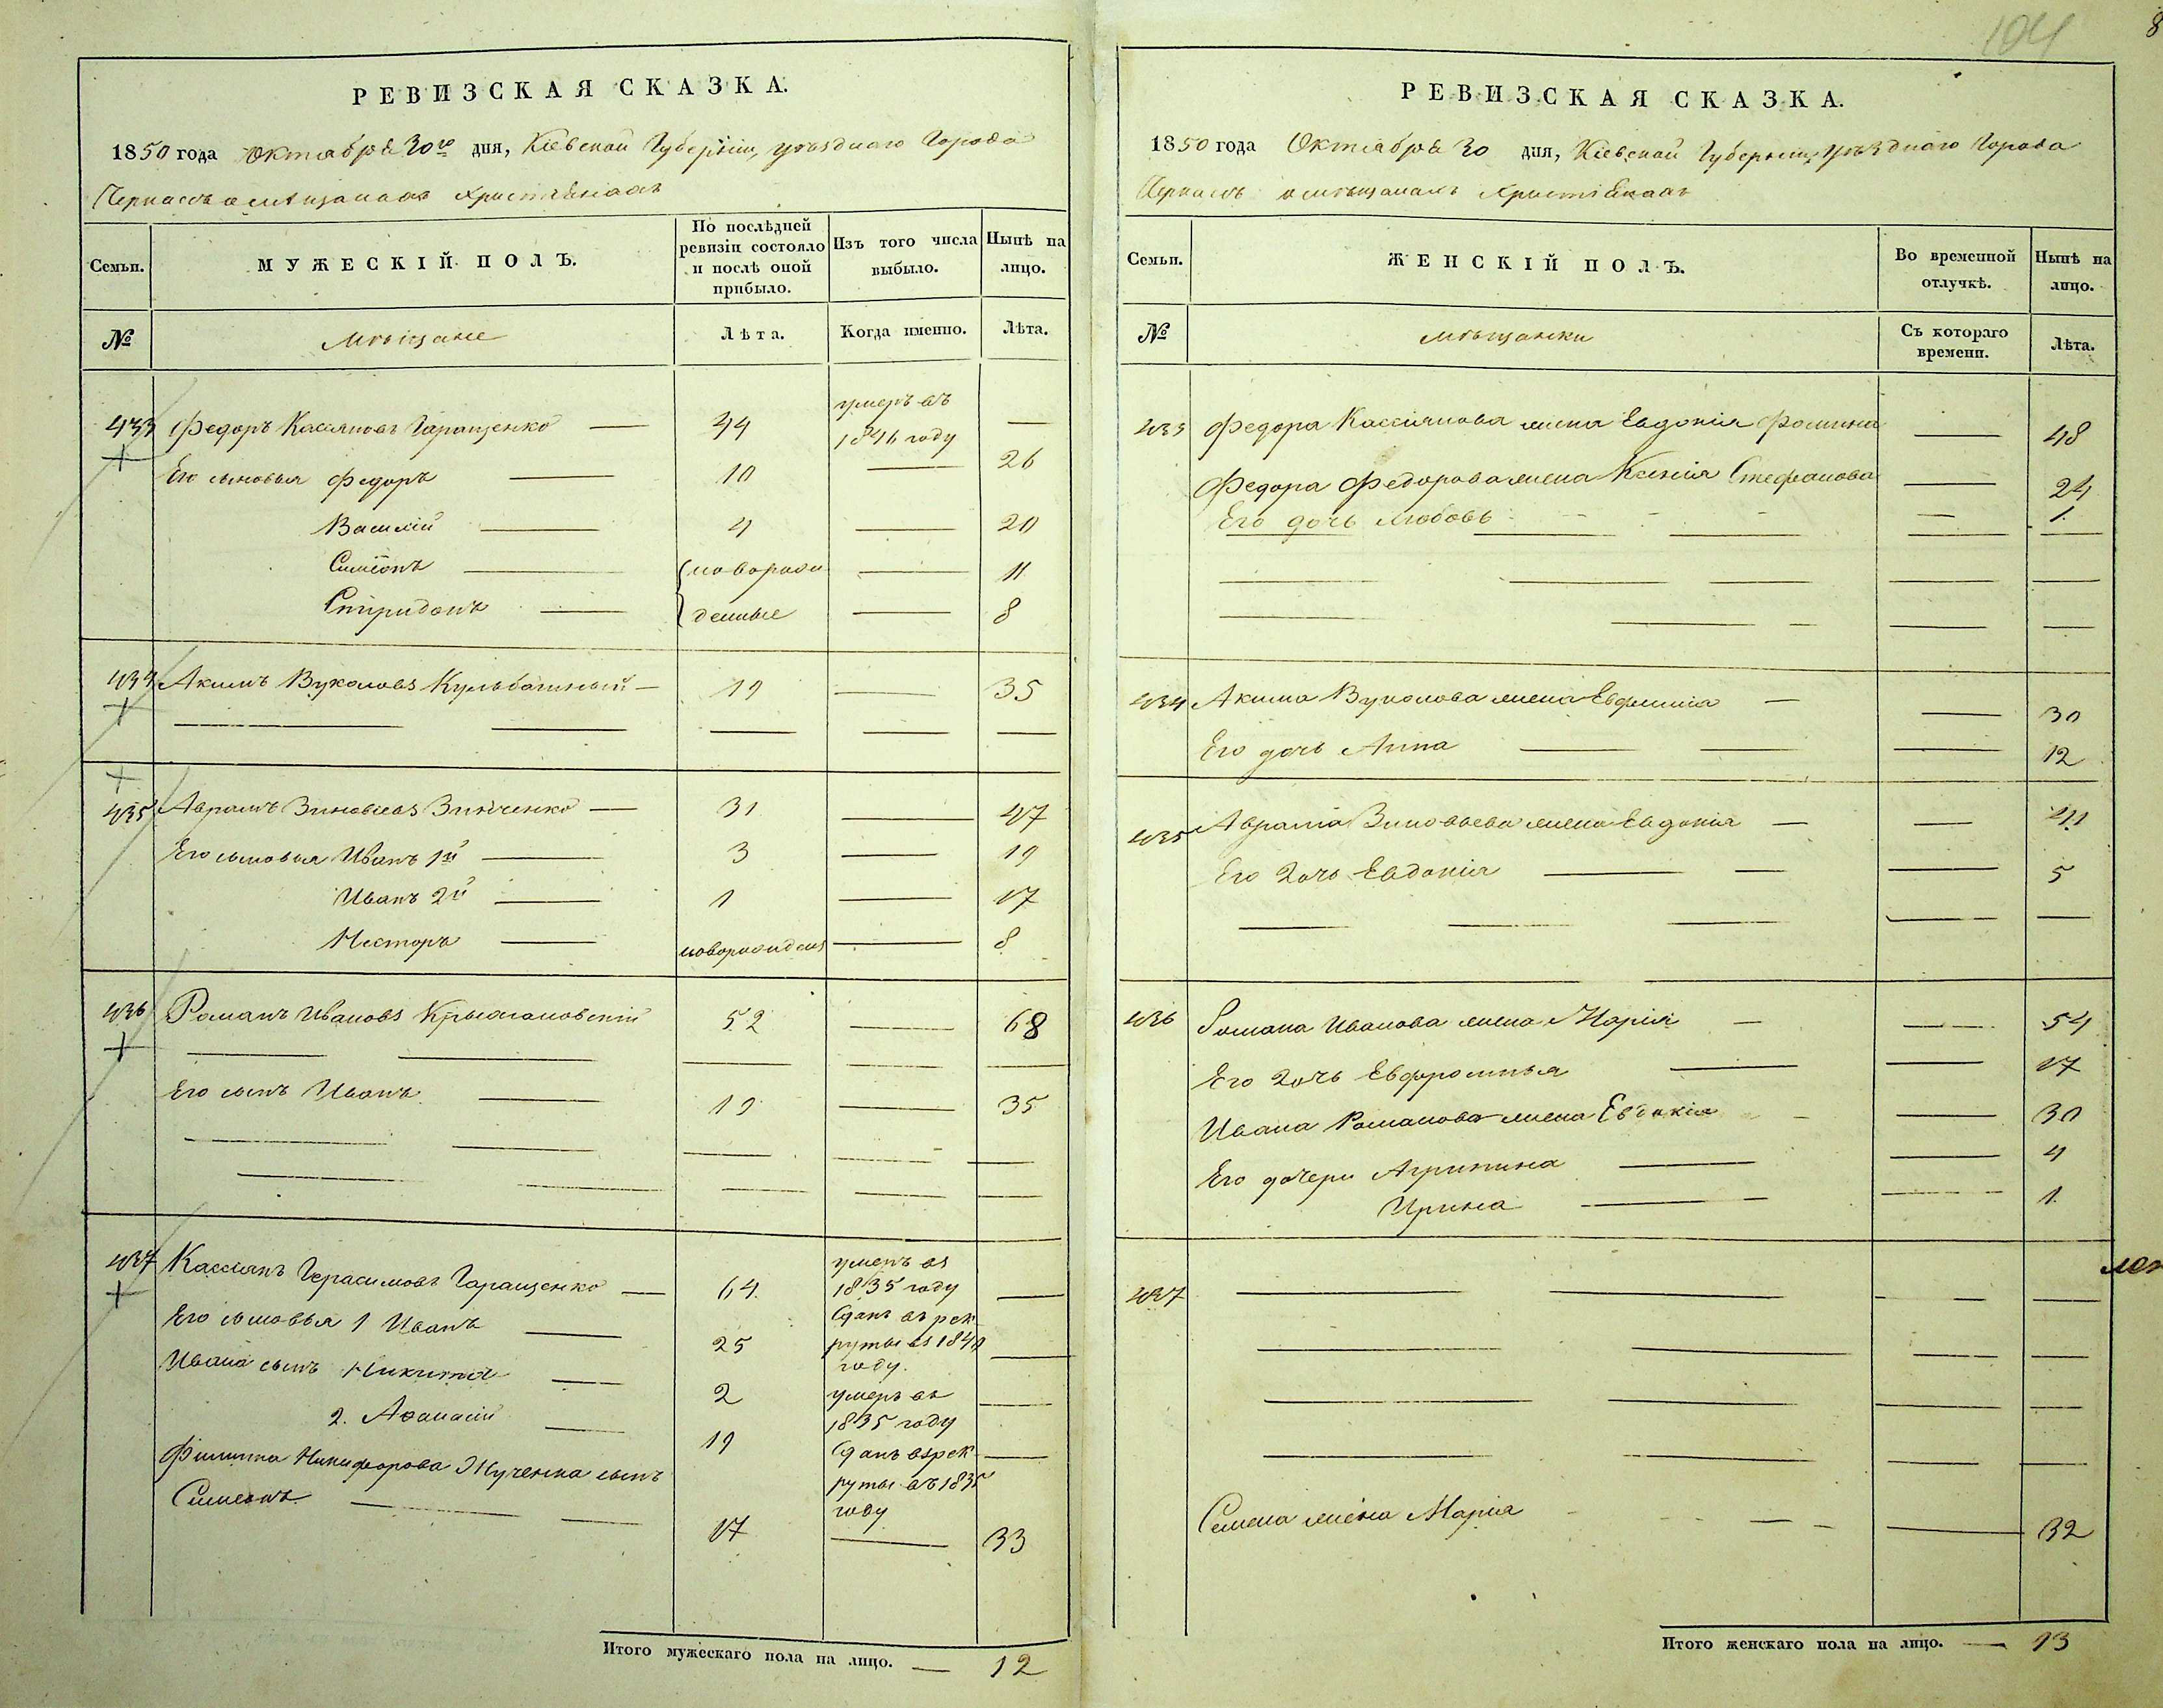 104
8
РЕВИЗСКАЯ СКАЗКА.
1850 года Октября 30го дня, Кіевской Губерніи, уѣзднаго Города
Черкасъ о мѣщанахъ христіянахъ
Семьи.
МУЖЕСКІЙ ПОЛЪ.
По послѣдней ревизіи состояло и послѣ оной прибыло.
Изъ того числа выбыло.
Нынѣ на лицо.
№
Мѣщане
Лѣта.
Когда именно.
Лѣта.
433 Федоръ Кассяновъ Геращенко — 44 умеръ въ 1846 году —
Его сыновья Федоръ — 10 — 26
Василій — 4 — 20
Симіонъ — новорож — 11
Спиридонъ — денные — 8
434 Акимъ Вуколовъ Кульбашный — 19 — 35
435 Аврамъ Зиновіевъ Зинченко — 31 — 47
Его сыновья Иванъ 1й — 3 — 19
Иванъ 2й — 1 — 17
Несторъ — новорожденъ — 8
436 Романъ Ивановъ Крыжановскій 52 — 68
Его сынъ Иванъ — 19 — 35
437 Кассіянъ Герасимовъ Геращенко — 64. умеръ въ 1835 году —
Его сыновья 1 Иванъ — 25 Сданъ въ рекруты въ 1840 году. —
Ивана сынъ Никита — 2 умеръ въ 1835 году —
2. Афанасій — 19 Сданъ въ рекруты въ 1835 году —
Филиппа Никифорова Жученка сынъ
Симеонъ — 17 — 33
Итого мужескаго пола на лицо. — 12
РЕВИЗСКАЯ СКАЗКА.
1850 года Октября 30 дня, Кіевской Губерніи, уѣзднаго Города
Черкасъ о мѣщанахъ христіянахъ
Семьи.
ЖЕНСКІЙ ПОЛЪ.
Во временной отлучкѣ.
Нынѣ на лицо.
№
Мѣщанки
Съ котораго времени.
Лѣта.
433 Федора Кассіянова жена Евдокія Фомина — 48
Федора Федорова жена Ксенія Стефанова — 24
Его дочь Любовь — 1.
434 Акима Вуколова жена Евфимія — 30
Его дочь Анна — 12
435 Аврама Зиновьева жена Евдокія — 41
Его дочь Евдокія — 5
436 Романа Иванова жена Марія — 54
Его дочь Евфросинья — 17
Ивана Романова жена Евдокія — 30
Его дочери Агрипина — 4
Ирина — 1.
437
Семена жена Марія — 32
Итого женскаго пола на лицо. — 13